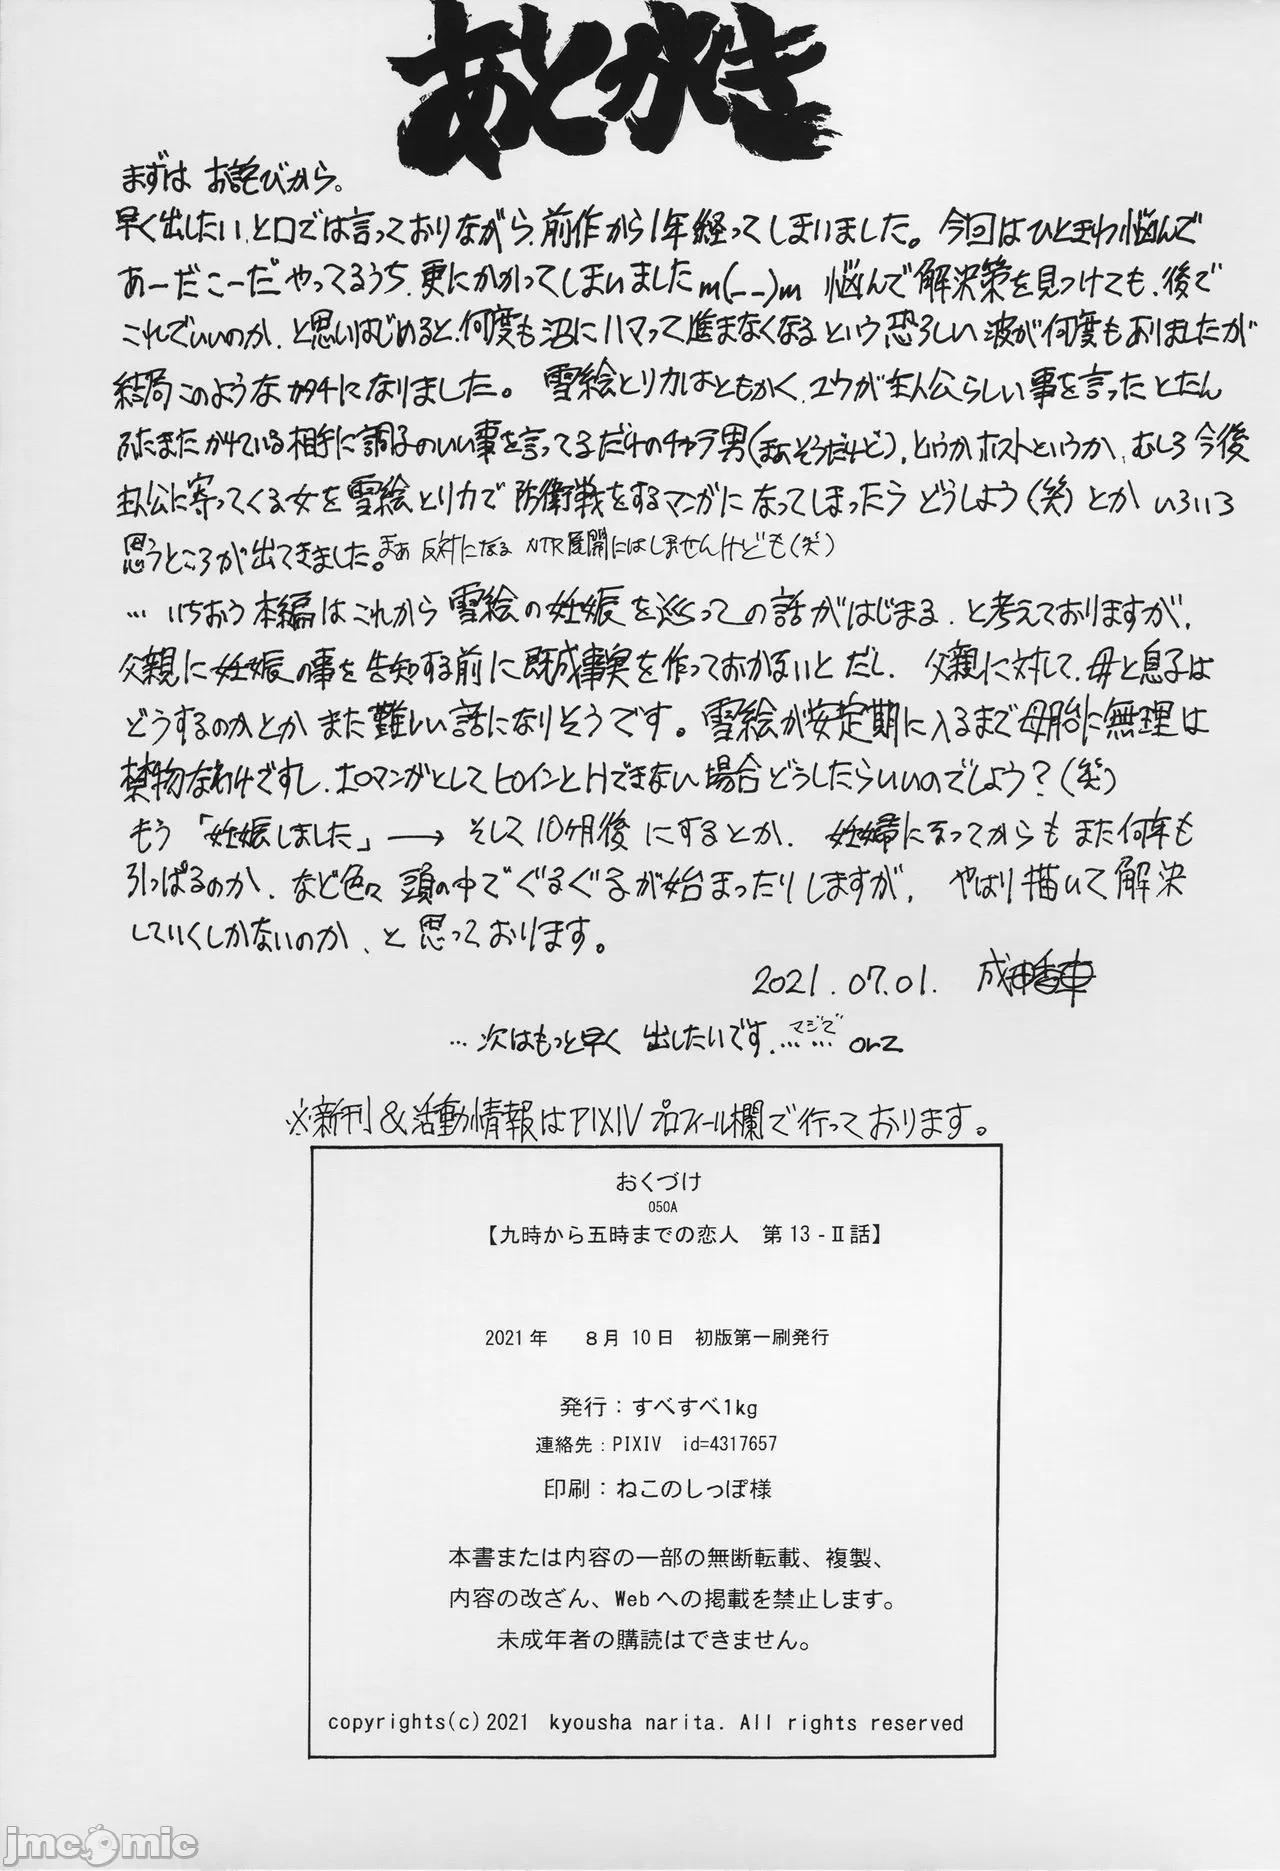 あとがき
まずは お詫びから。
早く出したい、と口では言っておりながら、前作から1年経ってしまいました。今回はひときわ悩んで
あーだこーだやってるうち、更にかかってしまいましたm(_ _)m 悩んで解決策を見つけても、後で
これでいいのか、と思いはじめると、何度も沼にハマって進まなくなるという恐ろしい波が何度もありましたが
結局このようなカタチになりました。 雪絵とリカはともかく、ユウが主人公らしい事を言ったとたん
ふたまたかけている相手に調子のいい事を言ってるだけのチャラ男(まあそうだけど)、というかホストというか、むしろ今後
主人公に寄ってくる女を雪絵とリカで防衛戦をするマンガになってしまったらどうしよう(笑)とか いろいろ
思うところが出てきました。まぁ 反対になる NTR展開にはしませんけども(笑)
… いちおう本編はこれから 雪絵の妊娠を巡っての話がはじまる、と考えておりますが、
父親に妊娠の事を告知する前に既成事実を作っておかないとだし、 父親に対して、母と息子は
どうするのかとか また難しい話になりそうです。雪絵が安定期に入るまで母胎に無理は
禁物なわけですし、エロマンガとしてヒロインとHできない場合どうしたらいいのでしょう?(笑)
もう「妊娠しました」→ そして10ヶ月後 にするとか、 妊婦になってからもまた何年も
引っぱるのか、など色々 頭の中でぐるぐるが始まったりしますが、 やはり描いて解決
していくしかないのか、と思っております。
2021.07.01. 成田香車
… 次はもっと早く 出したいです、マジで…… orz
※新刊&活動情報はPIXIVプロフィール欄で行っております。
おくづけ
050A
【九時から五時までの恋人 第13-Ⅱ話】
2021年 8月10日 初版第一刷発行
発行：すべすべ1kg
連絡先：PIXIV id=4317657
印刷：ねこのしっぽ様
本書または内容の一部の無断転載、複製、
内容の改ざん、Webへの掲載を禁止します。
未成年者の購読はできません。
copyrights(c)2021 kyousha narita. All rights reserved
jmcomic